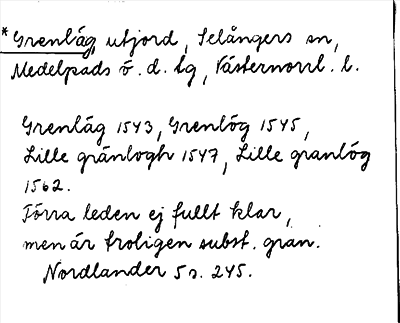 *Grenlåg, utjord, Selångers sn,
Medelpads ö. d. tg, Västernorrl. l.
Grenlåg 1543, Grenlög 1545,
Lille gränlogh 1547, Lille granlög
1562.
Förra leden ej fullt klar,
men är troligen subst. gran.
Nordlander 5 s. 245.